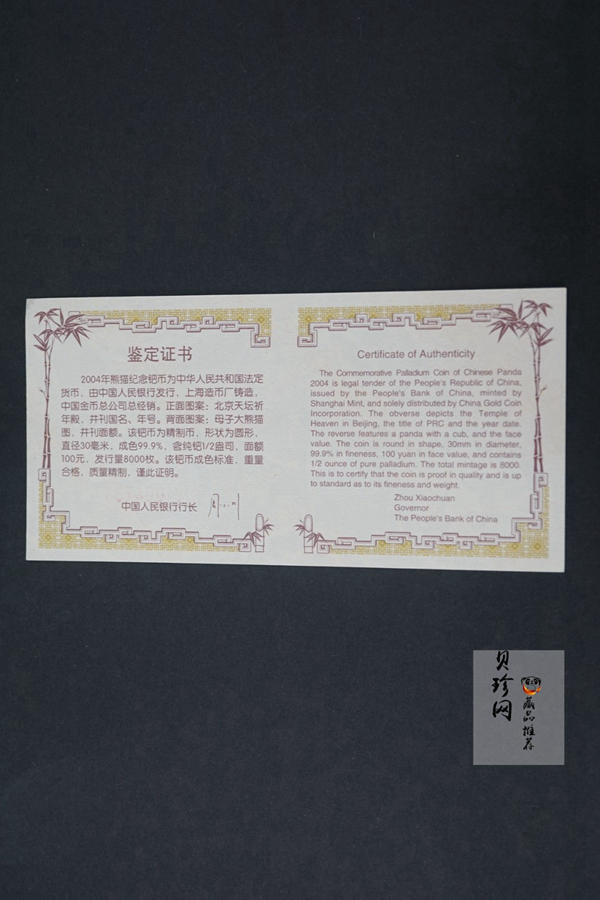 鉴定证书
2004年熊猫纪念钯币为中华人民共和国法定
货币，由中国人民银行发行，上海造币厂铸造，
中国金币总公司总经销。正面图案：北京天坛祈
年殿，并刊国名、年号。背面图案：母子大熊猫
图，并刊面额。该钯币为精制币，形状为圆形，
直径30毫米，成色99.9%，含纯钯1/2盎司，面额
100元，发行量8000枚。该钯币成色标准，重量
合格，质量精制，谨此证明。
中国人民银行行长
Certificate of Authenticity
The Commemorative Palladium Coin of Chinese Panda
2004 is legal tender of the People's Republic of China,
issued by the People's Bank of China, minted by
Shanghai Mint, and solely distributed by China Gold Coin
Incorporation. The obverse depicts the Temple of
Heaven in Beijing, the title of PRC and the year date.
The reverse features a panda with a cub, and the face
value. The coin is round in shape, 30mm in diameter,
99.9% in fineness, 100 yuan in face value, and contains
1/2 ounce of pure palladium. The total mintage is 8000.
This is to certify that the coin is proof in quality and is up
to standard as to its fineness and weight.
Zhou Xiaochuan
Governor
The People's Bank of China
贝珍网
藏品推荐